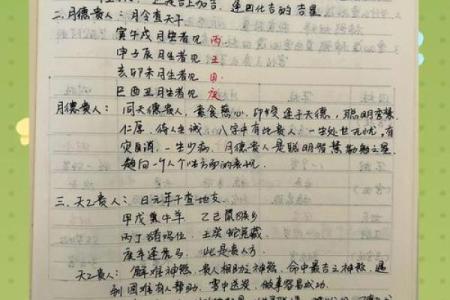 吉上加吉，逢凶化吉的吉星
二.月德贵人：月令查天干
寅午戌月生者见 丙
申子辰月生者见 壬
亥卯未月生者见 甲
巳酉丑月生者见 庚
月德贵人：同天德贵人，素食慈心，印绶逢于天德，聪明智慧
仁厚、待人生诚 八字中有此贵人 一生处世无忧，有
灾自消，一生少病，月德贵人是聪明智慧勤勉之星
趋向一个人个性方面的表现.
三. 天乙贵人：日元年干查地支
甲戊兼牛羊 乙己鼠猴乡
丙丁猪鸡位 壬癸蛇兔藏
庚辛逢虎马 此是贵人方
天乙贵人：解难神煞，贵人相助神煞，命中最吉之神煞，遇
到困难有人帮助，雪中送炭，做事容易成功